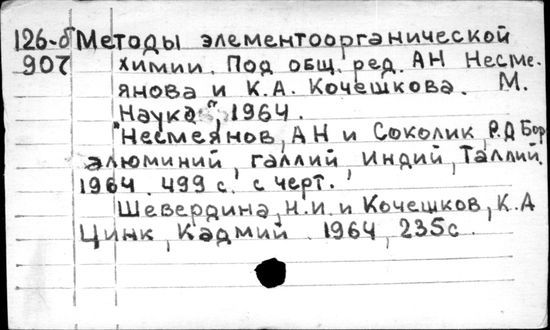 126-б Методы элементоорганической
907 химии. Под общ. ред. АН Несме-
янова и К.А. Кочешкова. М.
Наука", 1964.
"Несмеянов, АН и Соколик, Р.А Бор
алюминий, галлий, индий, Таллий.
1964. 499 с. с черт.
Шевердина, Н.И. и Кочешков, К.А
Цинк, Кадмий. 1964, 235с.